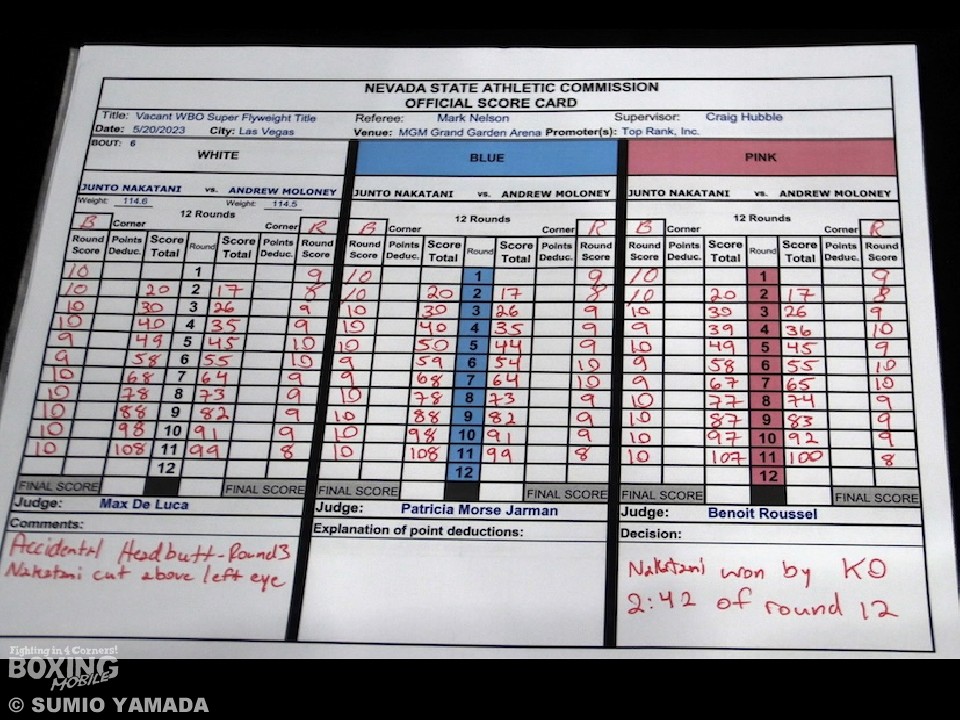 NEVADA STATE ATHLETIC COMMISSION
OFFICIAL SCORE CARD
Title: Vacant WBO Super Flyweight Title Referee: Mark Nelson Supervisor: Craig Hubble
Date: 5/20/2023 City: Las Vegas Venue: MGM Grand Garden Arena Promoter(s): Top Rank, Inc.
BOUT: 6
WHITE BLUE PINK
JUNTO NAKATANI vs. ANDREW MOLONEY JUNTO NAKATANI vs. ANDREW MOLONEY JUNTO NAKATANI vs. ANDREW MOLONEY
Weight: 114.6 Weight: 114.5
12 Rounds 12 Rounds 12 Rounds
B Corner Corner R B Corner Corner R B Corner Corner R
Round Score Points Deduc. Score Total Round Score Total Points Deduc. Round Score Round Score Points Deduc. Score Total Round Score Total Points Deduc. Round Score Round Score Points Deduc. Score Total Round Score Total Points Deduc. Round Score
10 1 9 10 1 9 10 1 9
10 20 2 17 8 10 20 2 17 8 10 20 2 17 8
10 30 3 26 9 10 30 3 26 9 10 30 3 26 9
10 40 4 35 9 10 40 4 35 9 9 39 4 36 10
9 49 5 45 10 10 50 5 44 9 10 49 5 45 9
9 58 6 55 10 9 59 6 54 10 9 58 6 55 10
10 68 7 64 9 9 68 7 64 10 9 67 7 65 10
10 78 8 73 9 10 78 8 73 9 10 77 8 74 9
10 88 9 82 9 10 88 9 82 9 10 87 9 83 9
10 98 10 91 9 10 98 10 91 9 10 97 10 92 9
10 108 11 99 8 10 108 11 99 8 10 107 11 100 8
12 12 12
FINAL SCORE FINAL SCORE FINAL SCORE FINAL SCORE FINAL SCORE FINAL SCORE
Judge: Max De Luca Judge: Patricia Morse Jarman Judge: Benoit Roussel
Comments: Explanation of point deductions: Decision:
Accidental Headbutt-Round3
Nakatani cut above left eye
Nakatani won by KO
2:42 of round 12
Fighting in 4 Corners!
BOXING
MOBILE
© SUMIO YAMADA